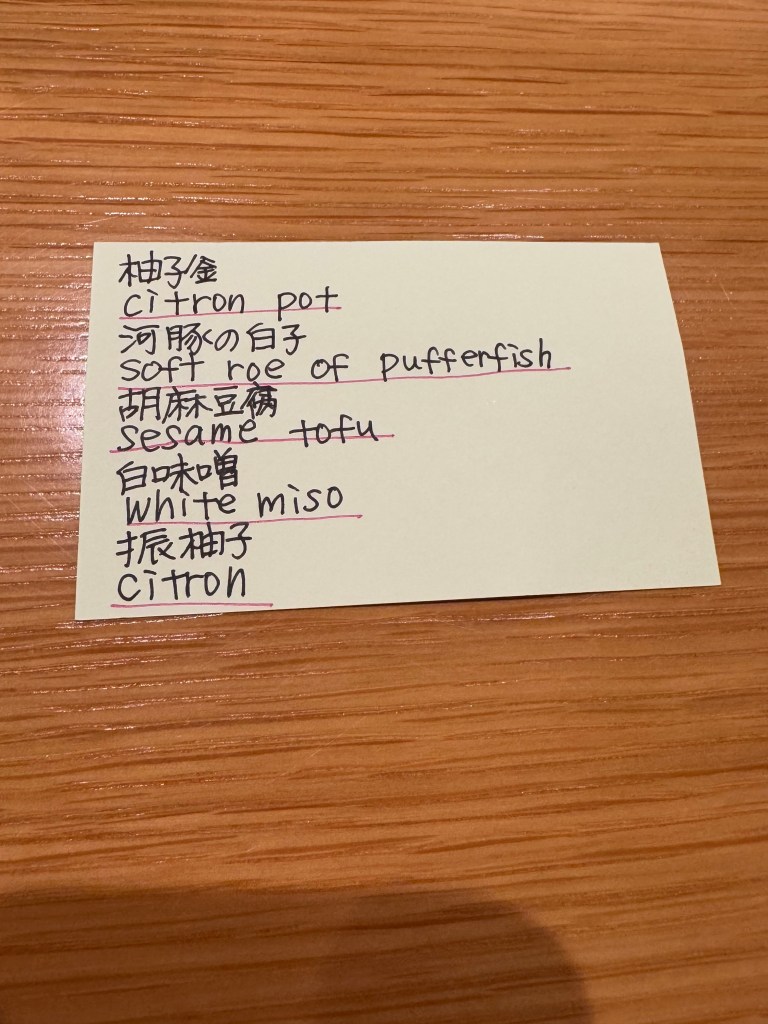 柚子釜
citron pot
河豚の白子
soft roe of pufferfish
胡麻豆腐
sesame tofu
白味噌
white miso
振柚子
citron